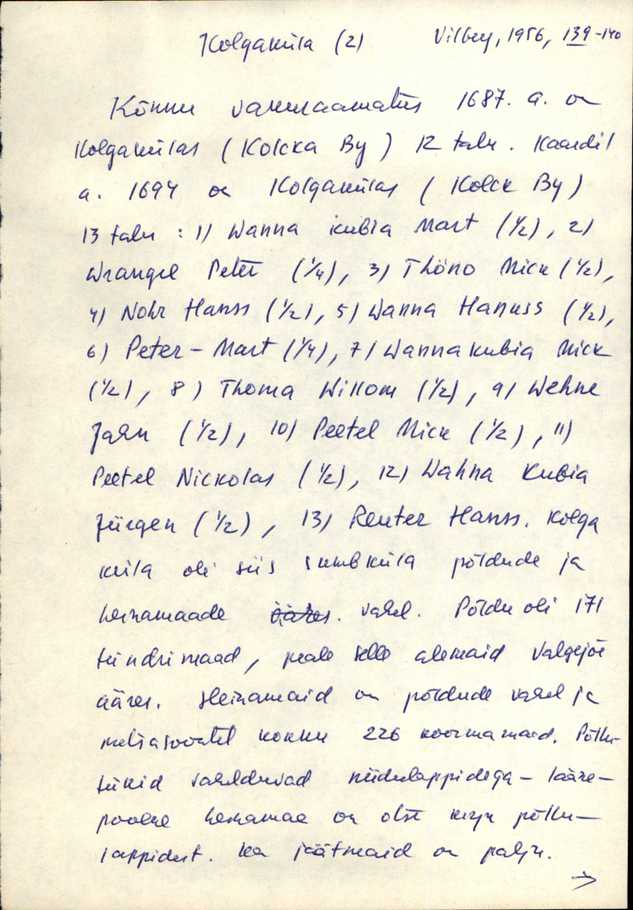 Kolgaküla (2) Vilbey, 1956, 139-140
Kõnnu vakuraamatus 1687. a. on
Kolgakülas (Kolcka By) 12 talu. Kaardil
a. 1694 on Kolgakülas (Kolck By)
13 talu : 1) Wanna kubia Mart (1/2), 2)
Wrangel Peter (1/4), 3) Thöno Mick (1/2),
4) Nohr Hanss (1/2), 5) Wanna Hanuss (1/2),
6) Peter-Mart (1/4), 7) Wannakubia Mick
(1/2), 8) Thoma Willom (1/2), 9) Wehne
Jahn (1/2), 10) Peetel Mick (1/2), 11)
Peetel Nickolas (1/2), 12) Wahna Kubia
Jürgen (1/2), 13) Reuter Hanss. Kolga
küla oli siis sumbküla põldude ja
heinamaade ääres. vahel. Põldu oli 171
tündrimaad, peale selle alemaid Valgejõe
ääres. Heinamaid on põldude vahel ja
metsasoontel kokku 226 koormamaad. Põllu-
tükid vahelduvad niidulappidega - lääne-
poolne heinamaa on olnd kirju põllu-
lappidest. Ka jäätmaid on palju.
→